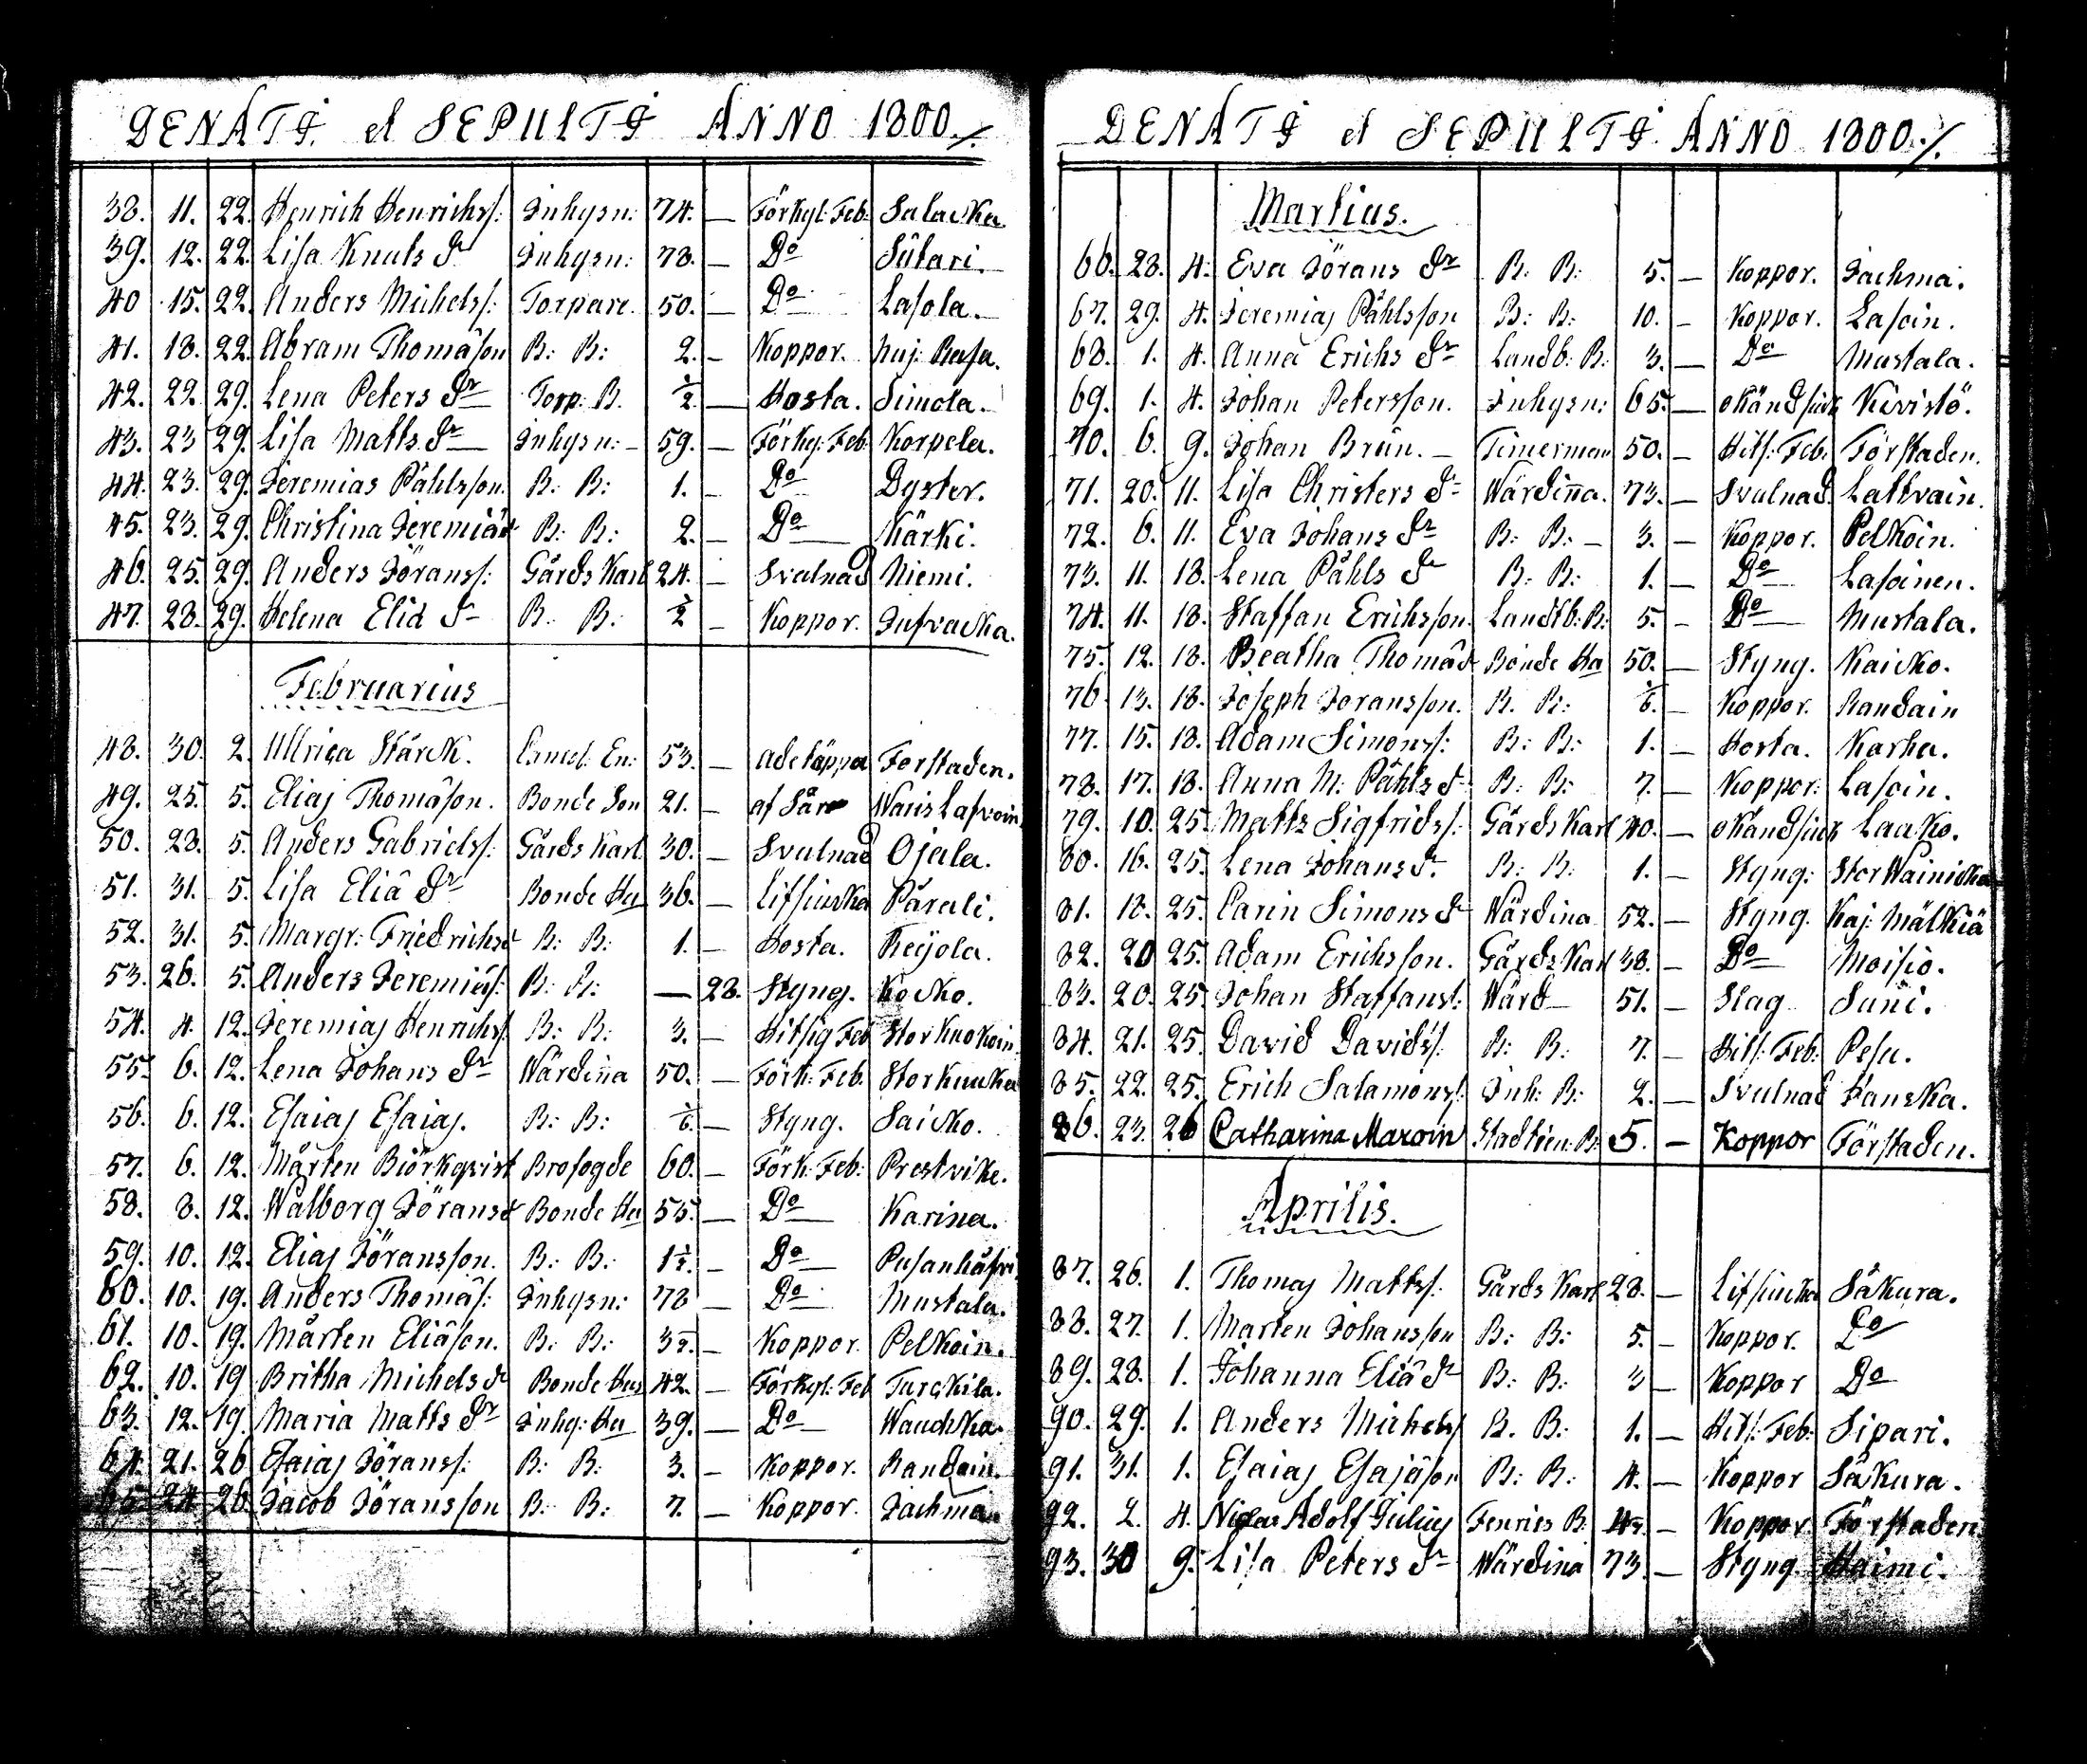 DENATI et SEPULTI ANNO 1800./.
38. 11. 22. Henrich Henrichss: Inhysn: 74. — Förkyl: Feb: Salacka
39. 12. 22. Lisa Knuts dr Inhysn: 78. — Do Sutari.
40 15. 22. Anders Michelss: Torpare 50. — Do Lasola.
41. 18. 22. Abram Thomason B: B: 2. — Koppor. Kuj: Rasa.
42. 22. 29. Lena Peters dr Torp: B. ½ — Hosta. Simola.
43. 23 29. Lisa Matts dr Inhysn: 59. — Förky: Feb: Korpela.
44. 23. 29. Jeremias Påhlsson. B: B: 1. — Do Dyster.
45. 23. 29. Christina Jeremiæd B: B: 2. — Do Kärki.
46. 25. 29. Anders Jöranss: Gårds Karl 24. — Svulnad Niemi.
47. 28. 29. Helena Eliæ dr B: B: ½ — Koppor.
Februarius
48. 30. 2. Ullrica Stårck. En: 53. — Forstaden.
49. 25. 5. Elias Thomâson. Bonde Son 21. — af Sår
50. 28. 5. Anders Gabrielss: Gårds Karl 30. — Svulnad Ojala.
51. 31. 5. Lisa Eliâ dr Bonde Hu 36. — Lifsiucka Parali.
52. 31. 5. Margr: Friedrichsd B: B: 1. — Hosta. Reijola.
53. 26. 5. Anders Jeremiæs: B: B: — 28. Styng. Kocko.
54. 4. 12. Jeremias Henrichs: B: B: 3. — Hitsig Feb Stor Kuokoin
55. 6. 12. Lena Johans dr Wärdinna 50. — Förk: Feb. Stor Kuuka
56. 6. 12. Esaias Esaias. B: B: Styng. Saicko.
57. 6. 12. Mårten Biörkqvist Brofogde 60. — Förk: Feb: Prestvike.
58. 8. 12. Walborg Jöransd Bonde Hu 55. — Do Karina.
59. 10. 12. Elias Jöransson. B: B: 1½ — Do
60. 10. 19. Anders Thomâs: Inhysn: 78 — Do Mustala.
61. 10. 19. Mårten Eliâson. B: B: 3½. — Koppor Pelkoin.
62. 10. 19 Britha Michels dr Bonde Hus 42. — Förkyl: Feb Turckila.
63. 12. 19. Maria Matts dr Inhy: Hu 39. — Do
64. 21. 26 Esaias Jöranss: B: B: 3. — Koppor. Randain.
65. 24. 26. Jacob Jöransson B: B: 7. — Koppor. Jachma.
DENATI et SEPULTI ANNO 1800./.
Martius.
66. 28. 4. Eva Jörans dr B: B: 5. — Koppor. Jachma.
67. 29. 4. Jeremias Påhlsson B: B: 10. — Koppor. Lasoin.
68. 1. 4. Anna Erichs dr Landb: B: 3. — Do Mustala.
69. 1. 4. Johan Petersson. Inhysn: 65. — okänd siuk Kivistö.
70. 6. 9. Johan Brun. — Timerman 50. — Hits: Feb: Förstaden.
71. 20. 11. Lisa Christers dr Wärdinna. 73. — Svulnad. Lattvain.
72. 6. 11. Eva Johans dr B: B: — 3. — Koppor. Pelkoin.
73. 11. 18. Lena Påhls dr B: B: 1. — Do Lasoinen.
74. 11. 18. Staffan Erichsson. Landtb: B: 5. — Do Mustala.
75. 12. 18. Beatha Thomâd Bonde Hu 50. — Styng. Kaicko.
76. 13. 18. Joseph Joransson. B: B: — Koppor. Randain
77. 15. 18. Adam Simonss: B: B: 1. — Hosta. Karha.
78. 17. 18. Anna M: Påhls dr B: B: 7. — Koppor: Lasoin.
79. 10. 25. Matts Sigfridss: Gårds Karl 40. — okänd siuk Laako.
80. 16. 25. Lena Johans d. B: B: 1. — Styng: Stor Wainicka
81. 18. 25. Carin Simons dr Wärdina 52. — Styng. Kaj: Mälkiä
82. 20 25. Adam Erichsson. Gårds Karl 38. — Do Moisio.
83. 20. 25 Johan Staffanss: Wärd 51. — Slag Suni.
84. 21. 25 David Davidss: B: B: 7. — Hits: Feb: Pesu.
85. 22. 25. Erich Salamonss: Inh: B: 2. — Svulnad Hanska.
86. 23. 26 Catharina Maroin B: 5. — Koppor Förstaden.
Aprilis.
87. 26. 1. Thomas Mattss: Gårds Karl 28. — Lifsiucka Säkura.
88. 27. 1. Marten Johansson B: B: 5. — Koppor. Do
89. 28. 1. Johanna Eliâ dr B: B: 3 — Koppor Do
90. 29. 1. Anders Michels B. B: 1. — Hits: Feb: Sipari.
91. 31. 1. Esaias Esajâson B: B: 4. — Koppor Säkura.
92. 2. 4. Adolf Julius Fenrics B. — Koppor. Förstaden
93. 30 9. Lisa Peters dr Wärdina 73. — Styng. Haimi.